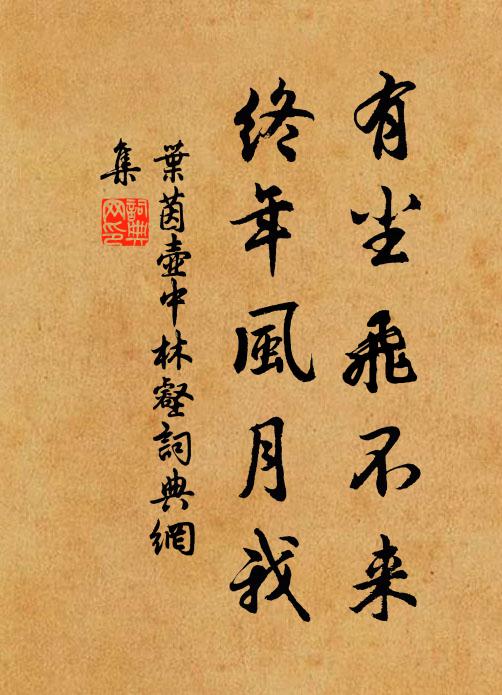 有尘飛不来
終年風月我
葉茵壺中林壑詞典網
集
詞典
网印